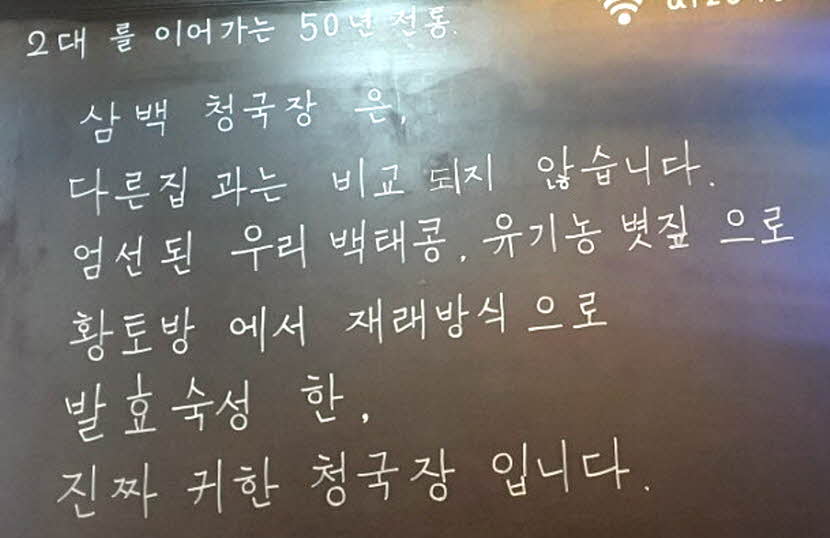 2대 를 이어가는 50년 전통.
삼백 청국장 은,
다른집 과는 비교 되지 않습니다.
엄선된 우리 백태콩, 유기농 볏짚 으로
황토방 에서 재래방식 으로
발효숙성 한,
진짜 귀한 청국장 입니다.